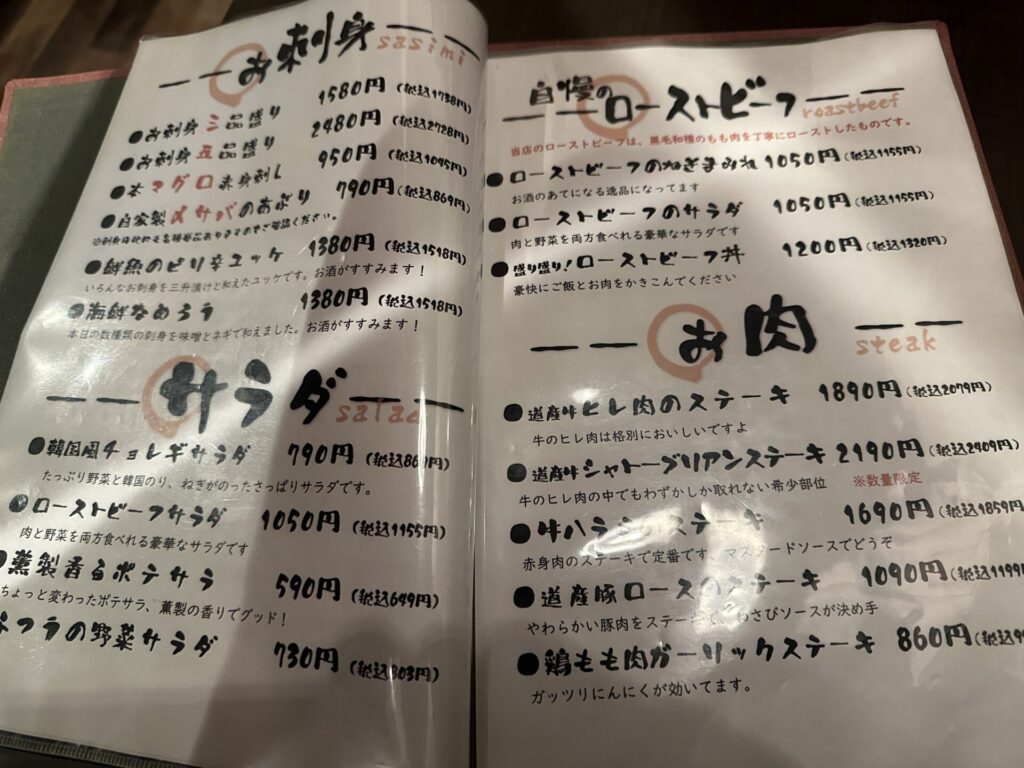 お刺身
sasimi
●お刺身三品盛り 1580円(税込1738円)
●お刺身五品盛り 2480円(税込2728円)
●本マグロ赤身刺し 950円(税込1045円)
●自家製〆サバのあぶり 790円(税込869円)
●鮮魚のピリ辛ユッケ 1380円(税込1518円)
いろんなお刺身を三升漬けと和えたユッケです。お酒がすすみます!
●海鮮なめろう 1380円(税込1518円)
本日の数種類の刺身を味噌とネギで和えました。お酒がすすみます!
サラダ
salad
●韓国風チョレギサラダ 790円(税込869円)
たっぷり野菜と韓国のり、ねぎがのったさっぱりサラダです。
●ローストビーフサラダ 1050円(税込1155円)
肉と野菜を両方食べれる豪華なサラダです
●薫製香るポテサラ 590円(税込649円)
ちょっと変わったポテサラ、薫製の香りでグッド!
フラの野菜サラダ 730円(税込803円)
自慢のローストビーフ
roastbeef
当店のローストビーフは、黒毛和種のもも肉を丁寧にローストしたものです。
●ローストビーフのねぎまみれ 1050円(税込1155円)
お酒のあてになる逸品になってます
●ローストビーフのサラダ 1050円(税込1155円)
肉と野菜を両方食べれる豪華なサラダです
●盛り盛り!ローストビーフ丼 1200円(税込1320円)
豪快にご飯とお肉をかきこんでください
お肉
steak
●道産牛ヒレ肉のステーキ 1890円(税込2079円)
牛のヒレ肉は格別においしいですよ
●道産牛シャトーブリアンステーキ 2190円(税込2409円)
牛のヒレ肉の中でもわずかしか取れない希少部位 ※数量限定
●牛ハラミのステーキ 1690円(税込1859円)
赤身肉のステーキで定番です。マスタードソースでどうぞ
●道産豚ロースのステーキ 1090円(税込1199円
やわらかい豚肉をステーキで、わさびソースが決め手
●鶏もも肉ガーリックステーキ 860円(税込9
ガッツリにんにくが効いてます。